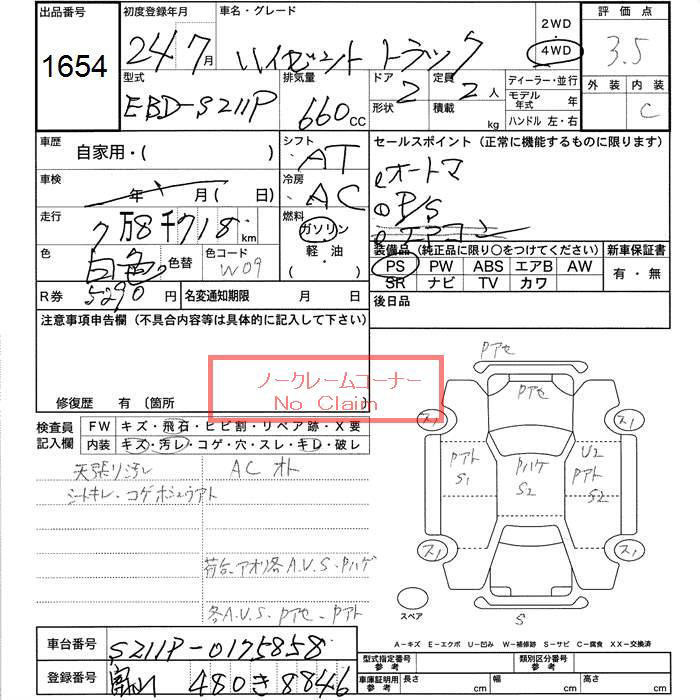 出品番号 初度登録年月 車名・グレード 2WD 評価点
1654 24 7月 ハイゼット トラック 4WD 3.5
型式 排気量 ドア 定員 ディーラー・並行 外装 内装
EBD-S211P 660cc 2 2人 モデル年式 年 C
形状 積載 kg ハンドル 左・右
車歴 シフト セールスポイント (正常に機能するものに限ります)
自家用・( ) AT オートマ
車検 冷房 P/S
年 月( 日) AC エアコン
走行 燃料 装備品 (純正品に限り○をつけてください) 新車保証書
7万8千718km ガソリン PS PW ABS エアB AW 有・無
色 色替 色コード 軽・油 SR ナビ TV カワ
白色 W09 ( )
R券 5290円 名変通知期限 月 日 後日品
注意事項申告欄 (不具合内容等は具体的に記入して下さい)
ノークレームコーナー
No Claim
修復歴 有 (箇所
Pアせ
Pアセ
検査員 FW キズ・飛石・ヒビ割・リペア跡・X要
記入欄 内装 キズ・汚レ・コゲ・穴・スレ・キレ・破レ
ス1 ス1
Pアト S1 Pハゲ S2 U2 Pアト S2
天張リ汚レ AC オト
シートキレ・コゲ
ス1 ス1
荷台、アオリ各A.U.S・Pハゲ
各A.U.S・Pアセ・Pアト
スペア S
A－キズ E－エクボ U－凹み W－補修跡 S－サビ C－腐食 XX－交換済
車台番号 S211P-0175858 型式指定番号 参考 類別区分番号 参考
登録番号 富山 480 き 8846 車庫証明用 参考 長さ cm 幅 cm 高さ cm